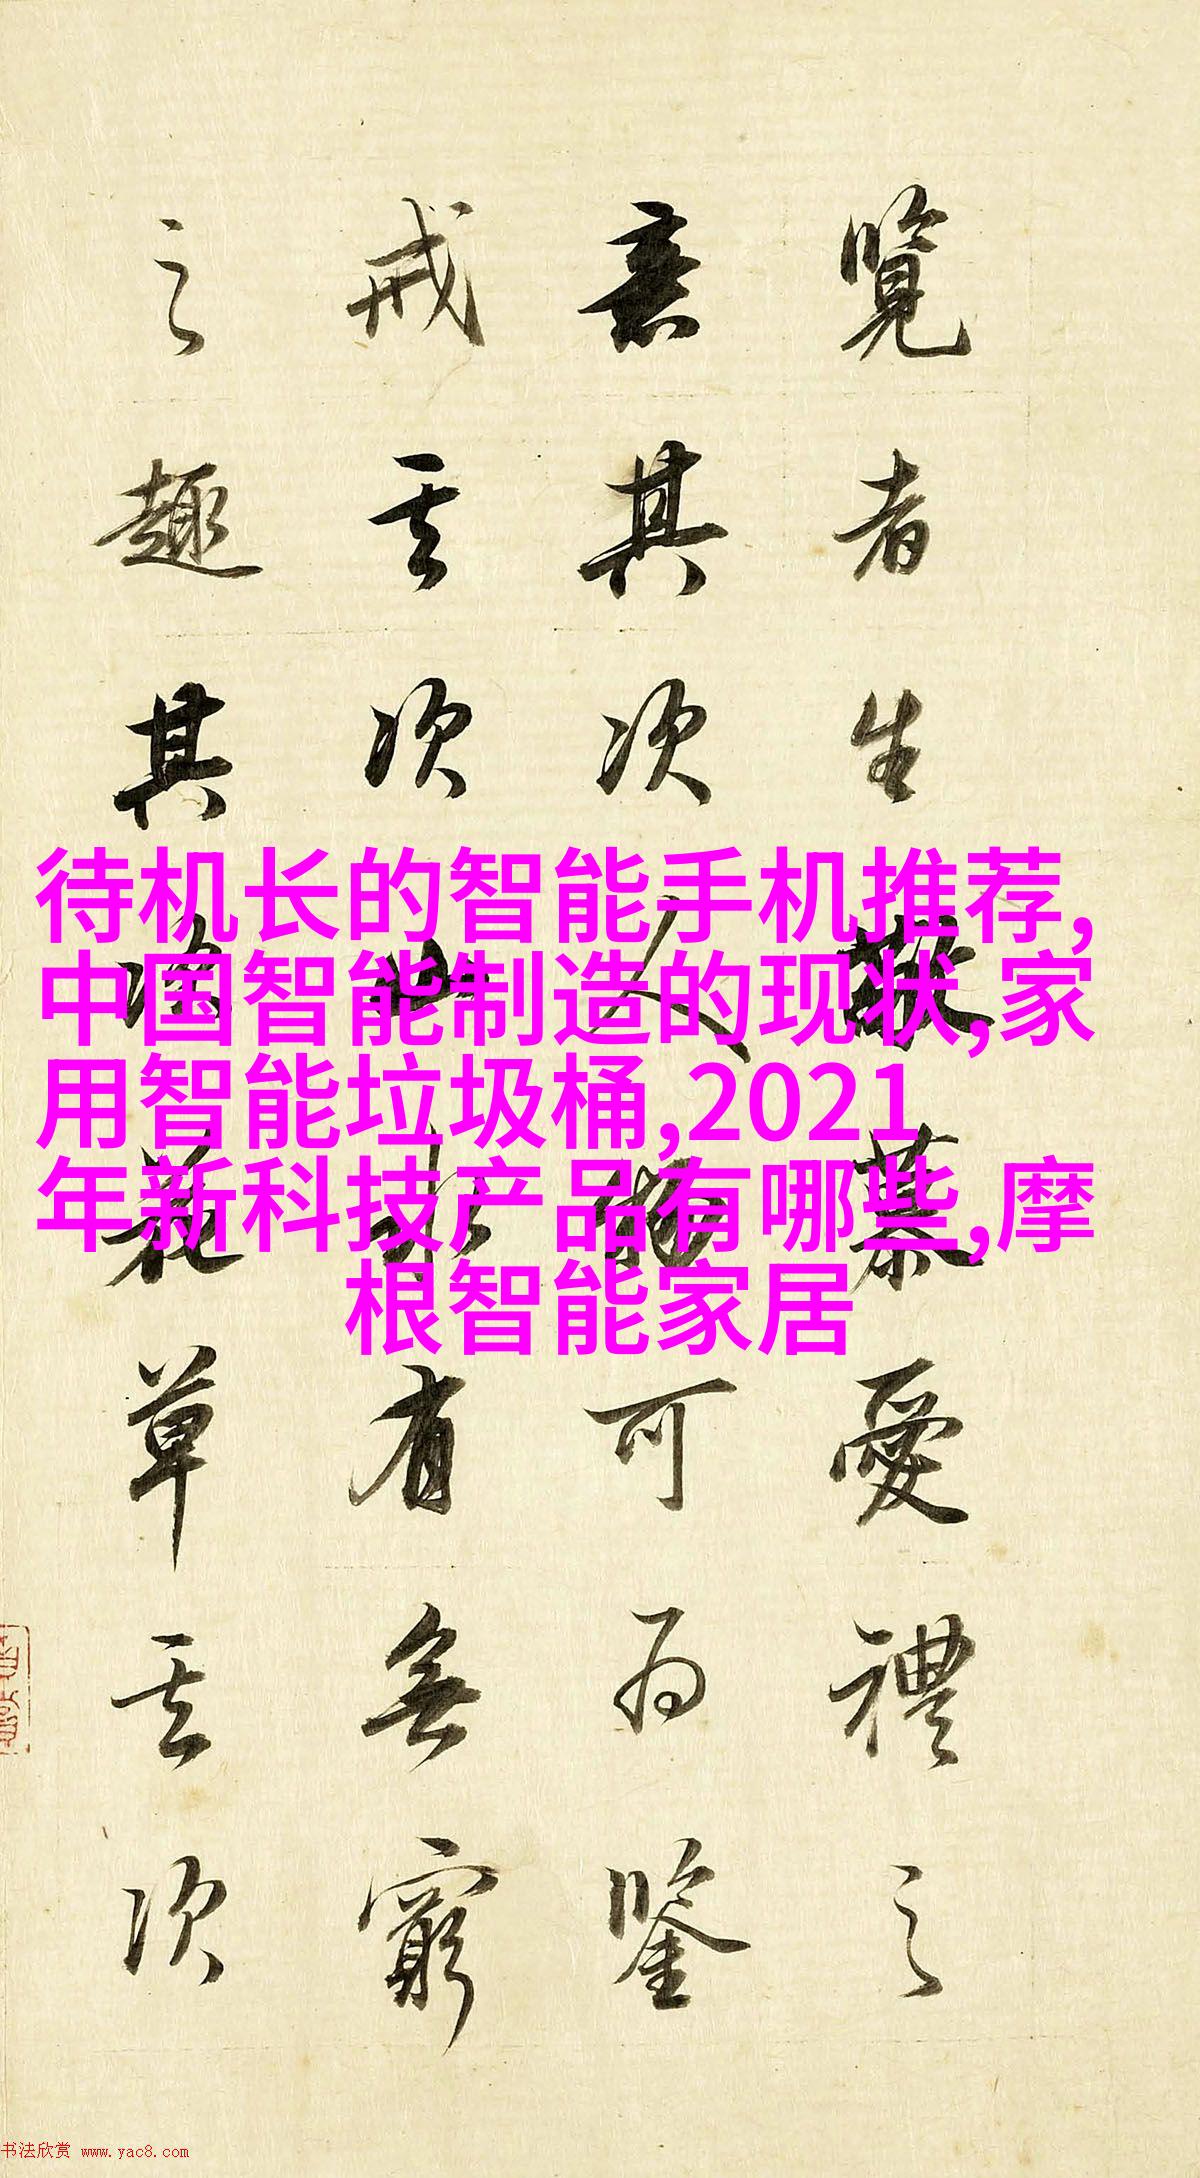 覽者生敬慕愛禮之
意其次人物可為鑒
戒其次山水有無窮
之趣其花草其次
待机长的智能手机推荐,
中国智能制造的现状,家
用智能垃圾桶,2021
年新科技产品有哪些,摩
根智能家居
书法欣赏 www.yac8.com